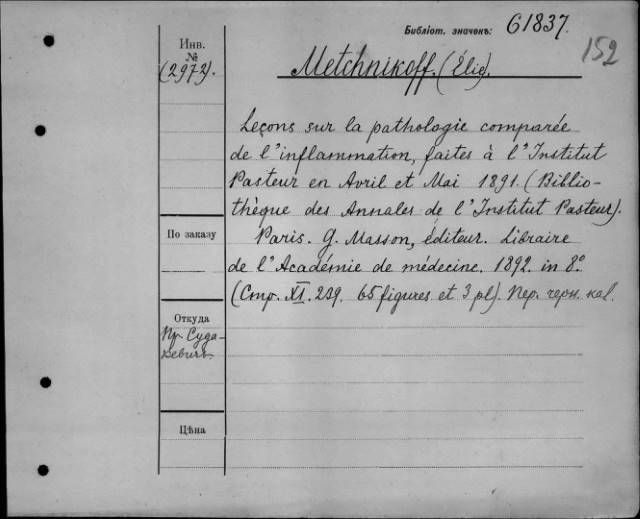 Библіот. значекъ: 61837.
152
Инв.
№
(2972).
Metchnikoff. (Élie).
Leçons sur la pathologie comparée
de l'inflammation, faites à l'Institut
Pasteur en Avril et Mai 1891. (Biblio-
thèque des Annales de l'Institut Pasteur).
По заказу
Paris. G. Masson, éditeur. Libraire
de l'Académie de médecine. 1892. in 8°.
(Стр. XI. 239. 65 figures et 3 pl). Пер. черн. кал.
Откуда
Пр. Суда-
кевичъ.
Цѣна